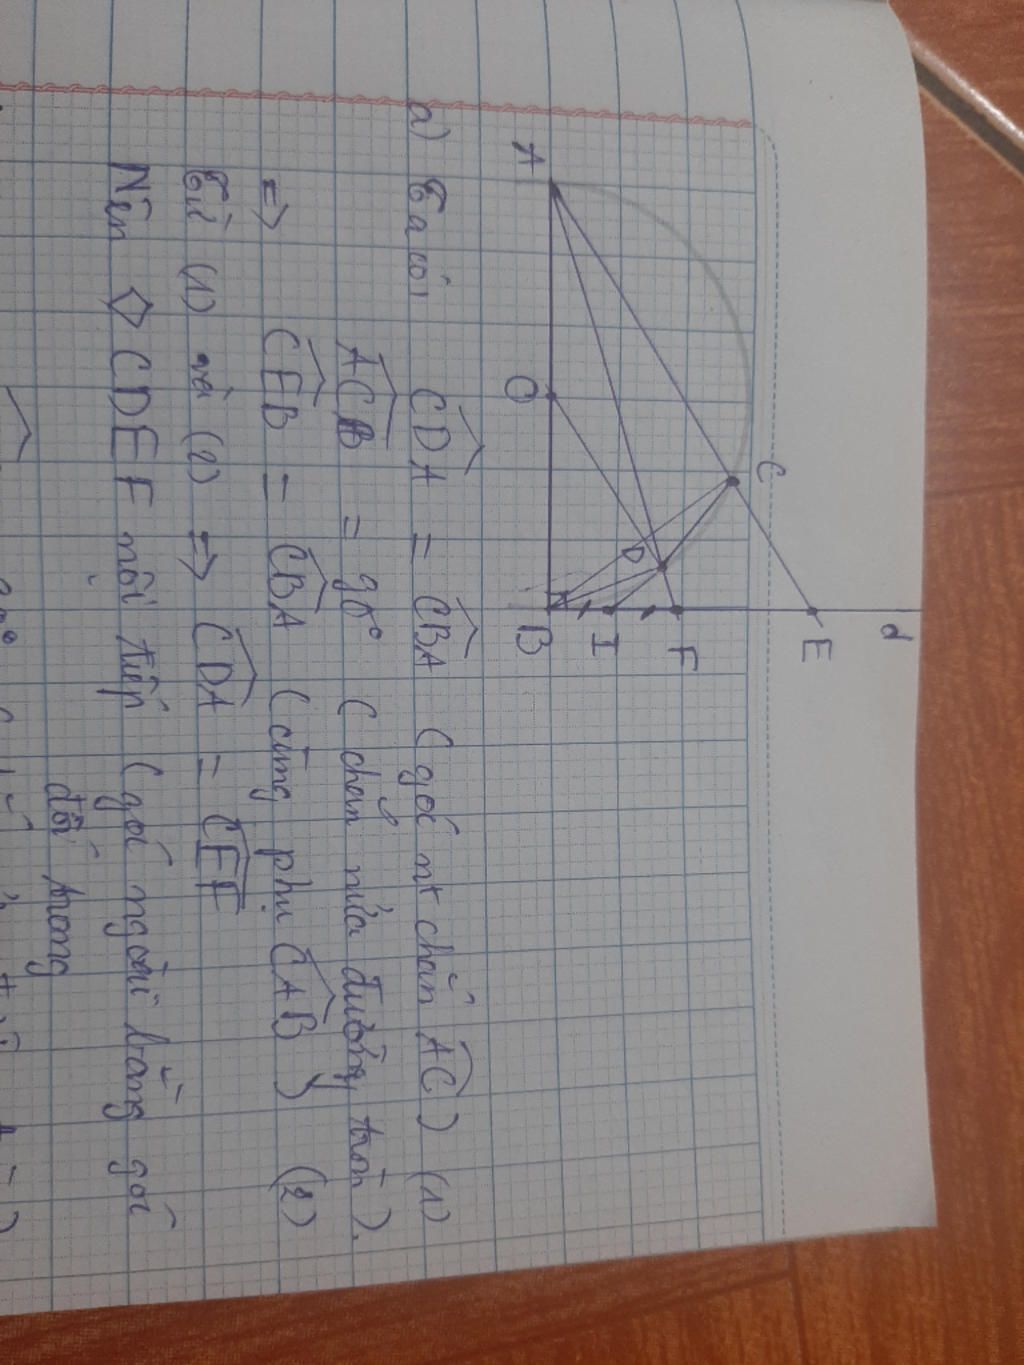 A
O
B
C
D
I
F
E
d
a) Ta có: CDA = CBA (góc nt chắn AC) (1)
ACB = 90° (chắn nửa đường tròn).
=> CEB = CBA (cùng phụ CAB) (2)
Từ (1) và (2) => CDA = CEF
Nên ◇CDEF nội tiếp (góc ngoài bằng góc
đối trong